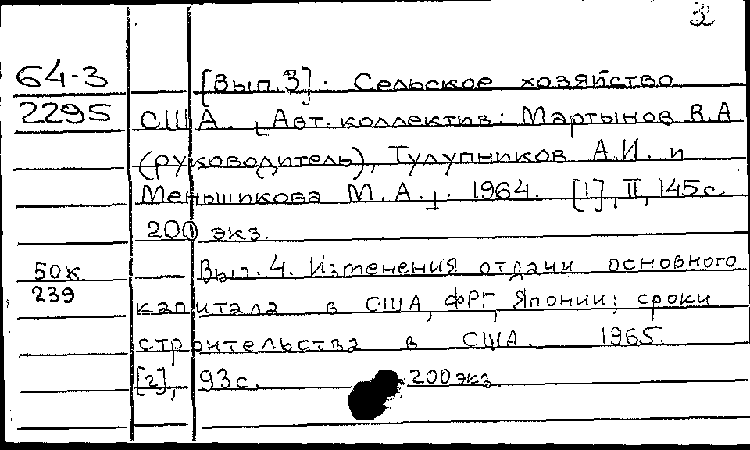 2
64-3
2295
[Вып.3]. Сельское хозяйство
США. Авт. коллектив: Мартынов В.А
(руководитель), Тулупников А.И. и
Меньшикова М.А. 1964. [1], II, 145 с.
200 экз.
50к
239
Вып. 4. Изменения отдачи основного
капитала в США, ФРГ, Японии; сроки
строительства в США. 1965.
[2], 93 с. 200 экз.